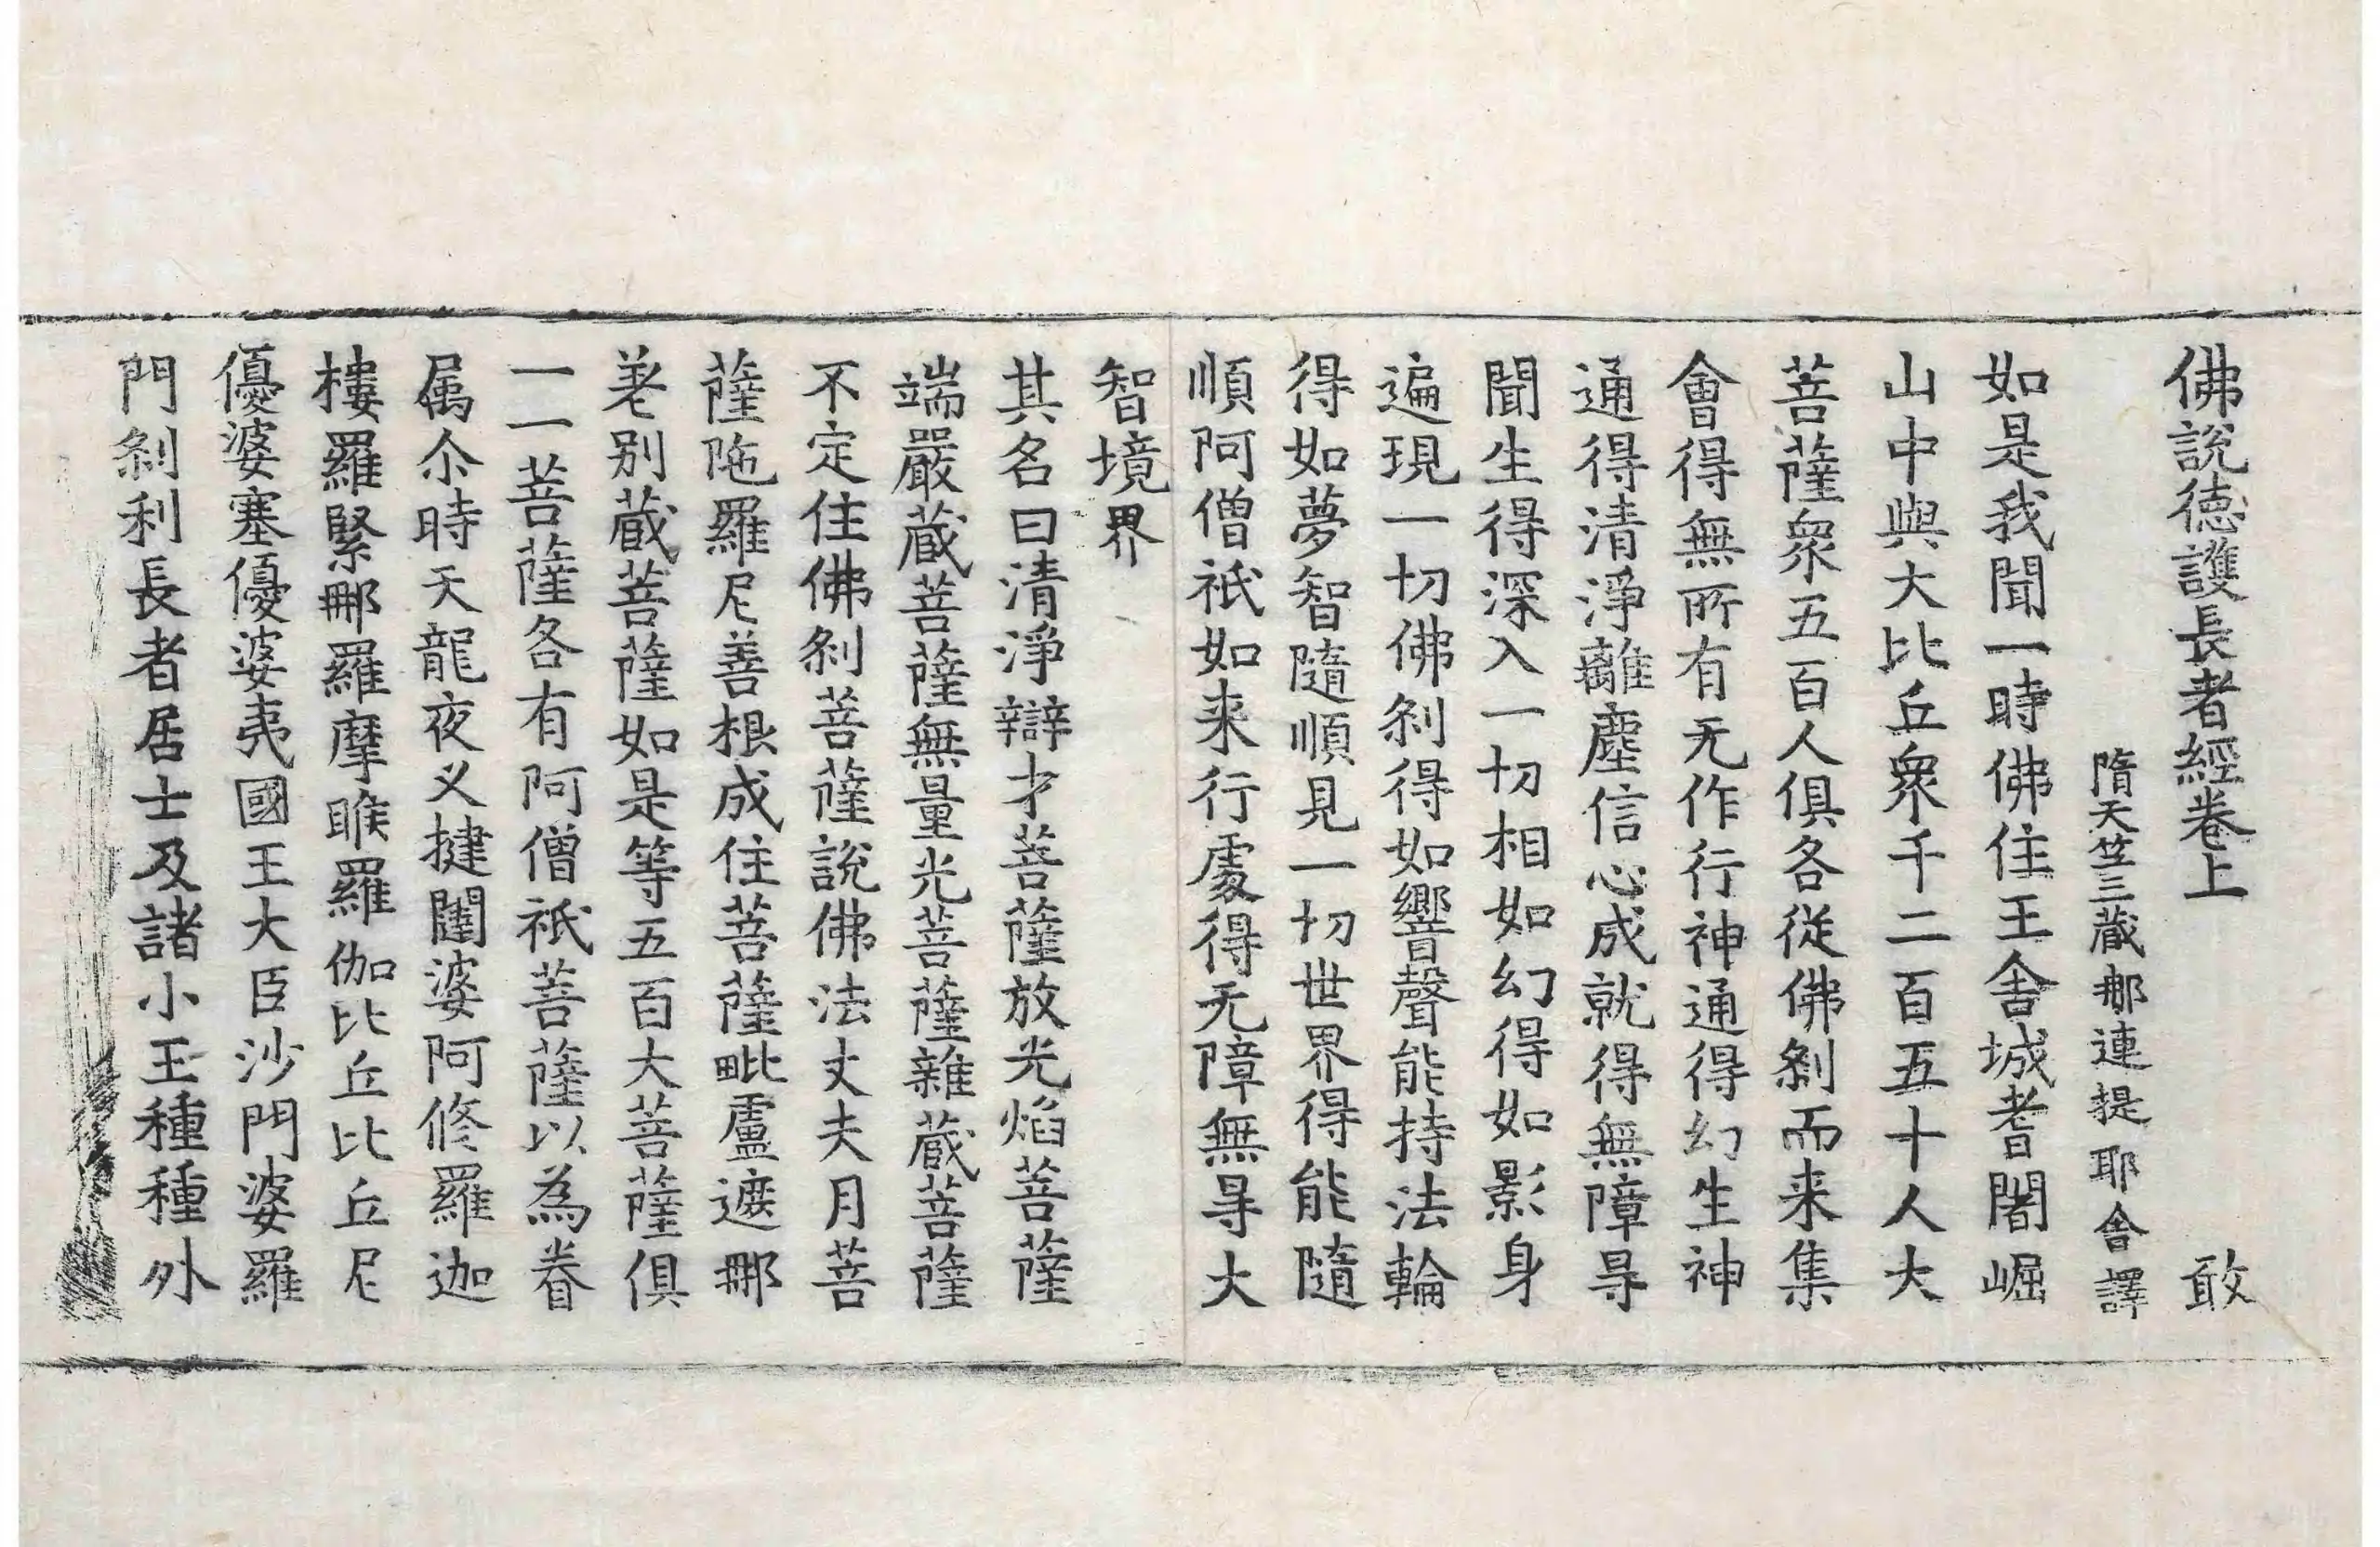 佛說德護長者經卷上 敢
隋天竺三藏那連提耶舍譯
如是我聞一時佛住王舍城耆闍崛
山中與大比丘衆千二百五十人大
菩薩衆五百人俱各從佛剎而来集
會得無所有无作行神通得幻生神
通得清淨離塵信心成就得無障㝵
聞生得深入一切相如幻得如影身
遍現一切佛剎得如響聲能持法輪
得如夢智隨順見一切世界得能隨
順阿僧祇如来行處得无障無㝵大
智境界
其名曰清淨辯才菩薩放光焰菩薩
端嚴蔵菩薩無量光菩薩雜蔵菩薩
不定住佛剎菩薩說佛法丈夫月菩
薩陁羅尼善根成住菩薩毗盧遮那
差別蔵菩薩如是等五百大菩薩俱
一一菩薩各有阿僧祇菩薩以為眷
属尒時天龍夜义揵闥婆阿修羅迦
樓羅緊那羅摩睺羅伽比丘比丘尼
優婆塞優婆夷國王大臣沙門婆羅
門剎利長者居士及諸小王種種外